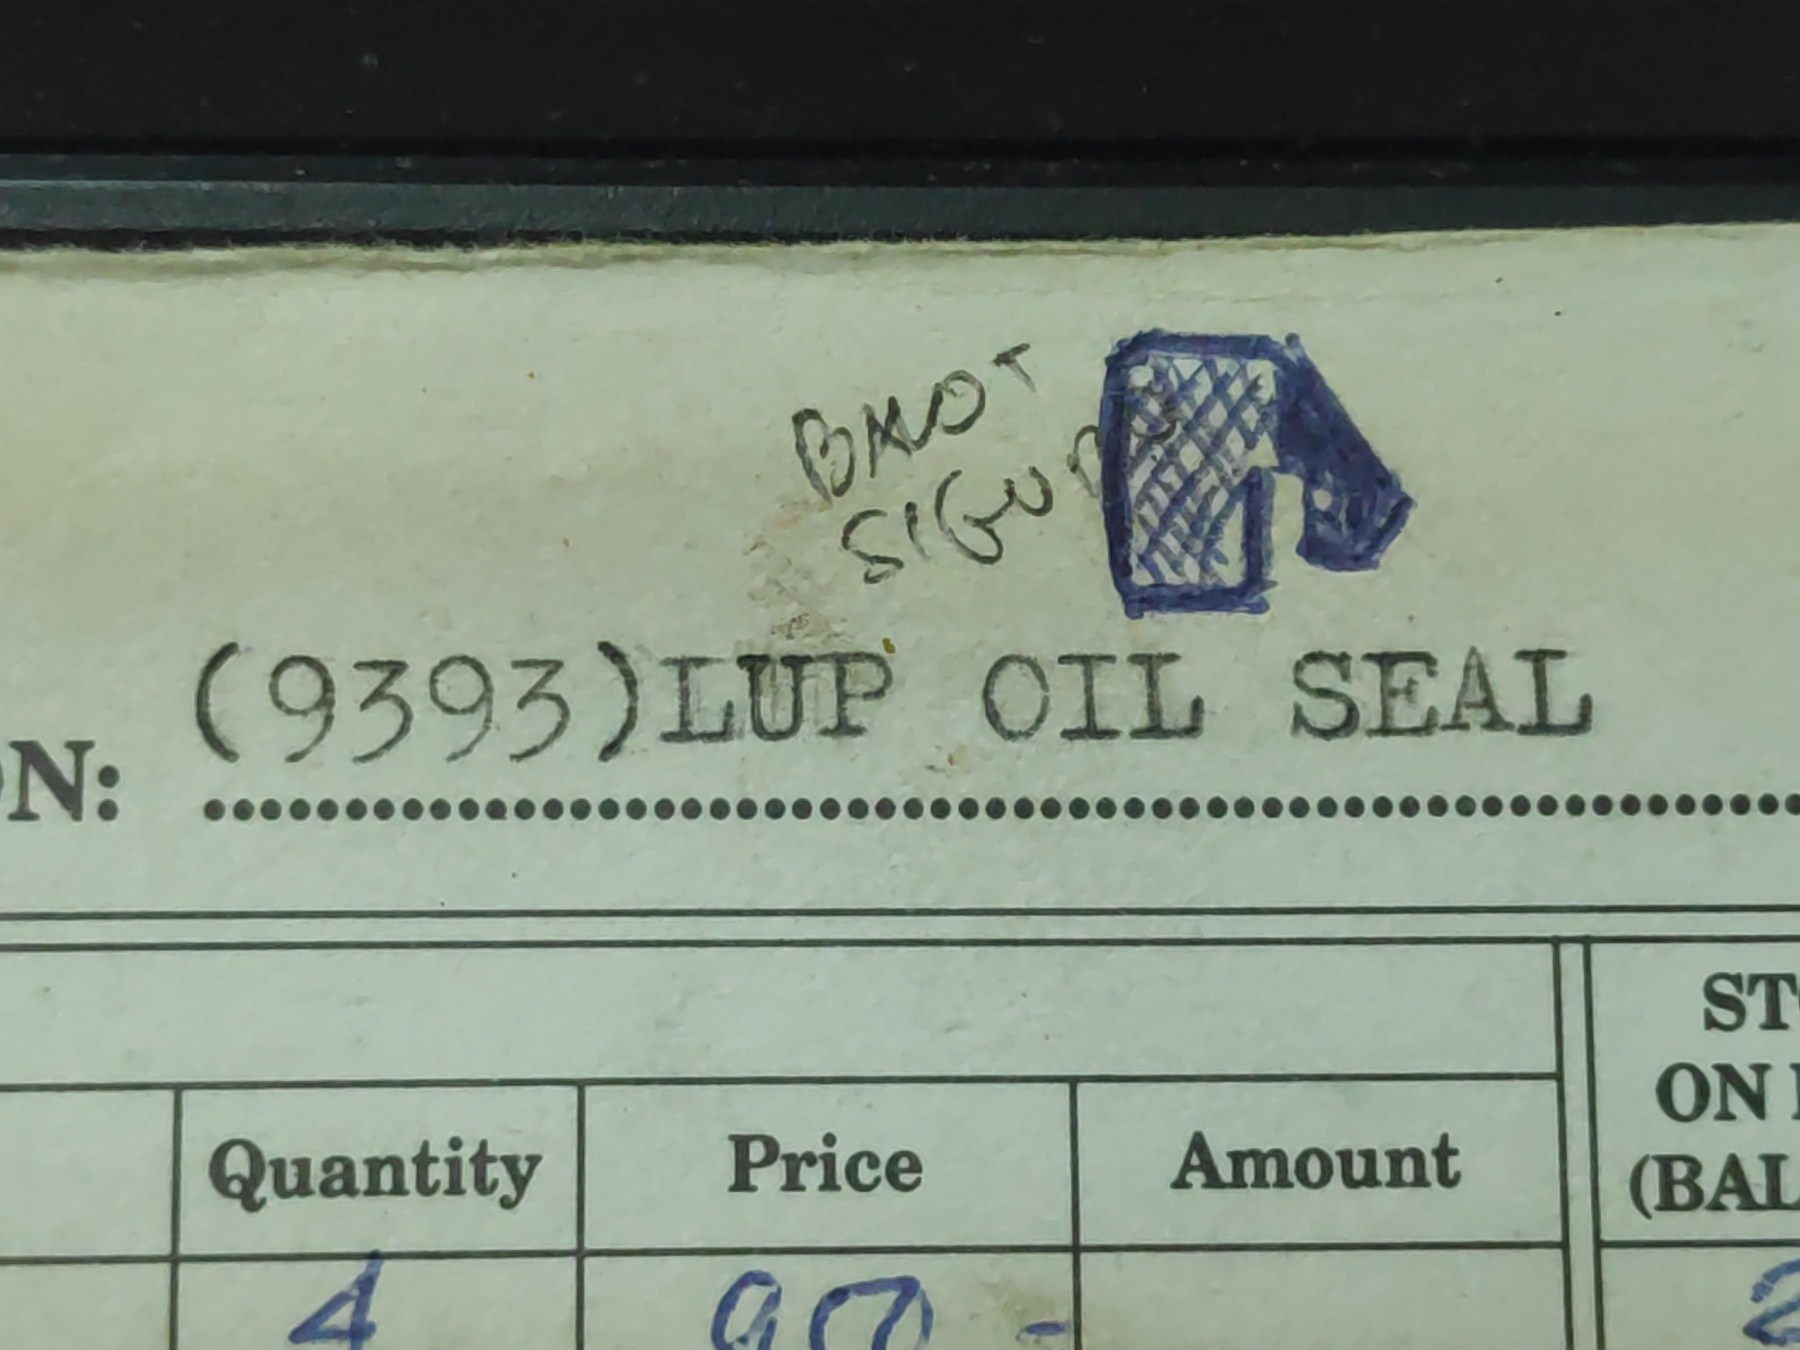 BMOT
SIGU
(9393)LUP OIL SEAL
N:
Quantity Price Amount
ST
ON
(BAL
4 90 - 2